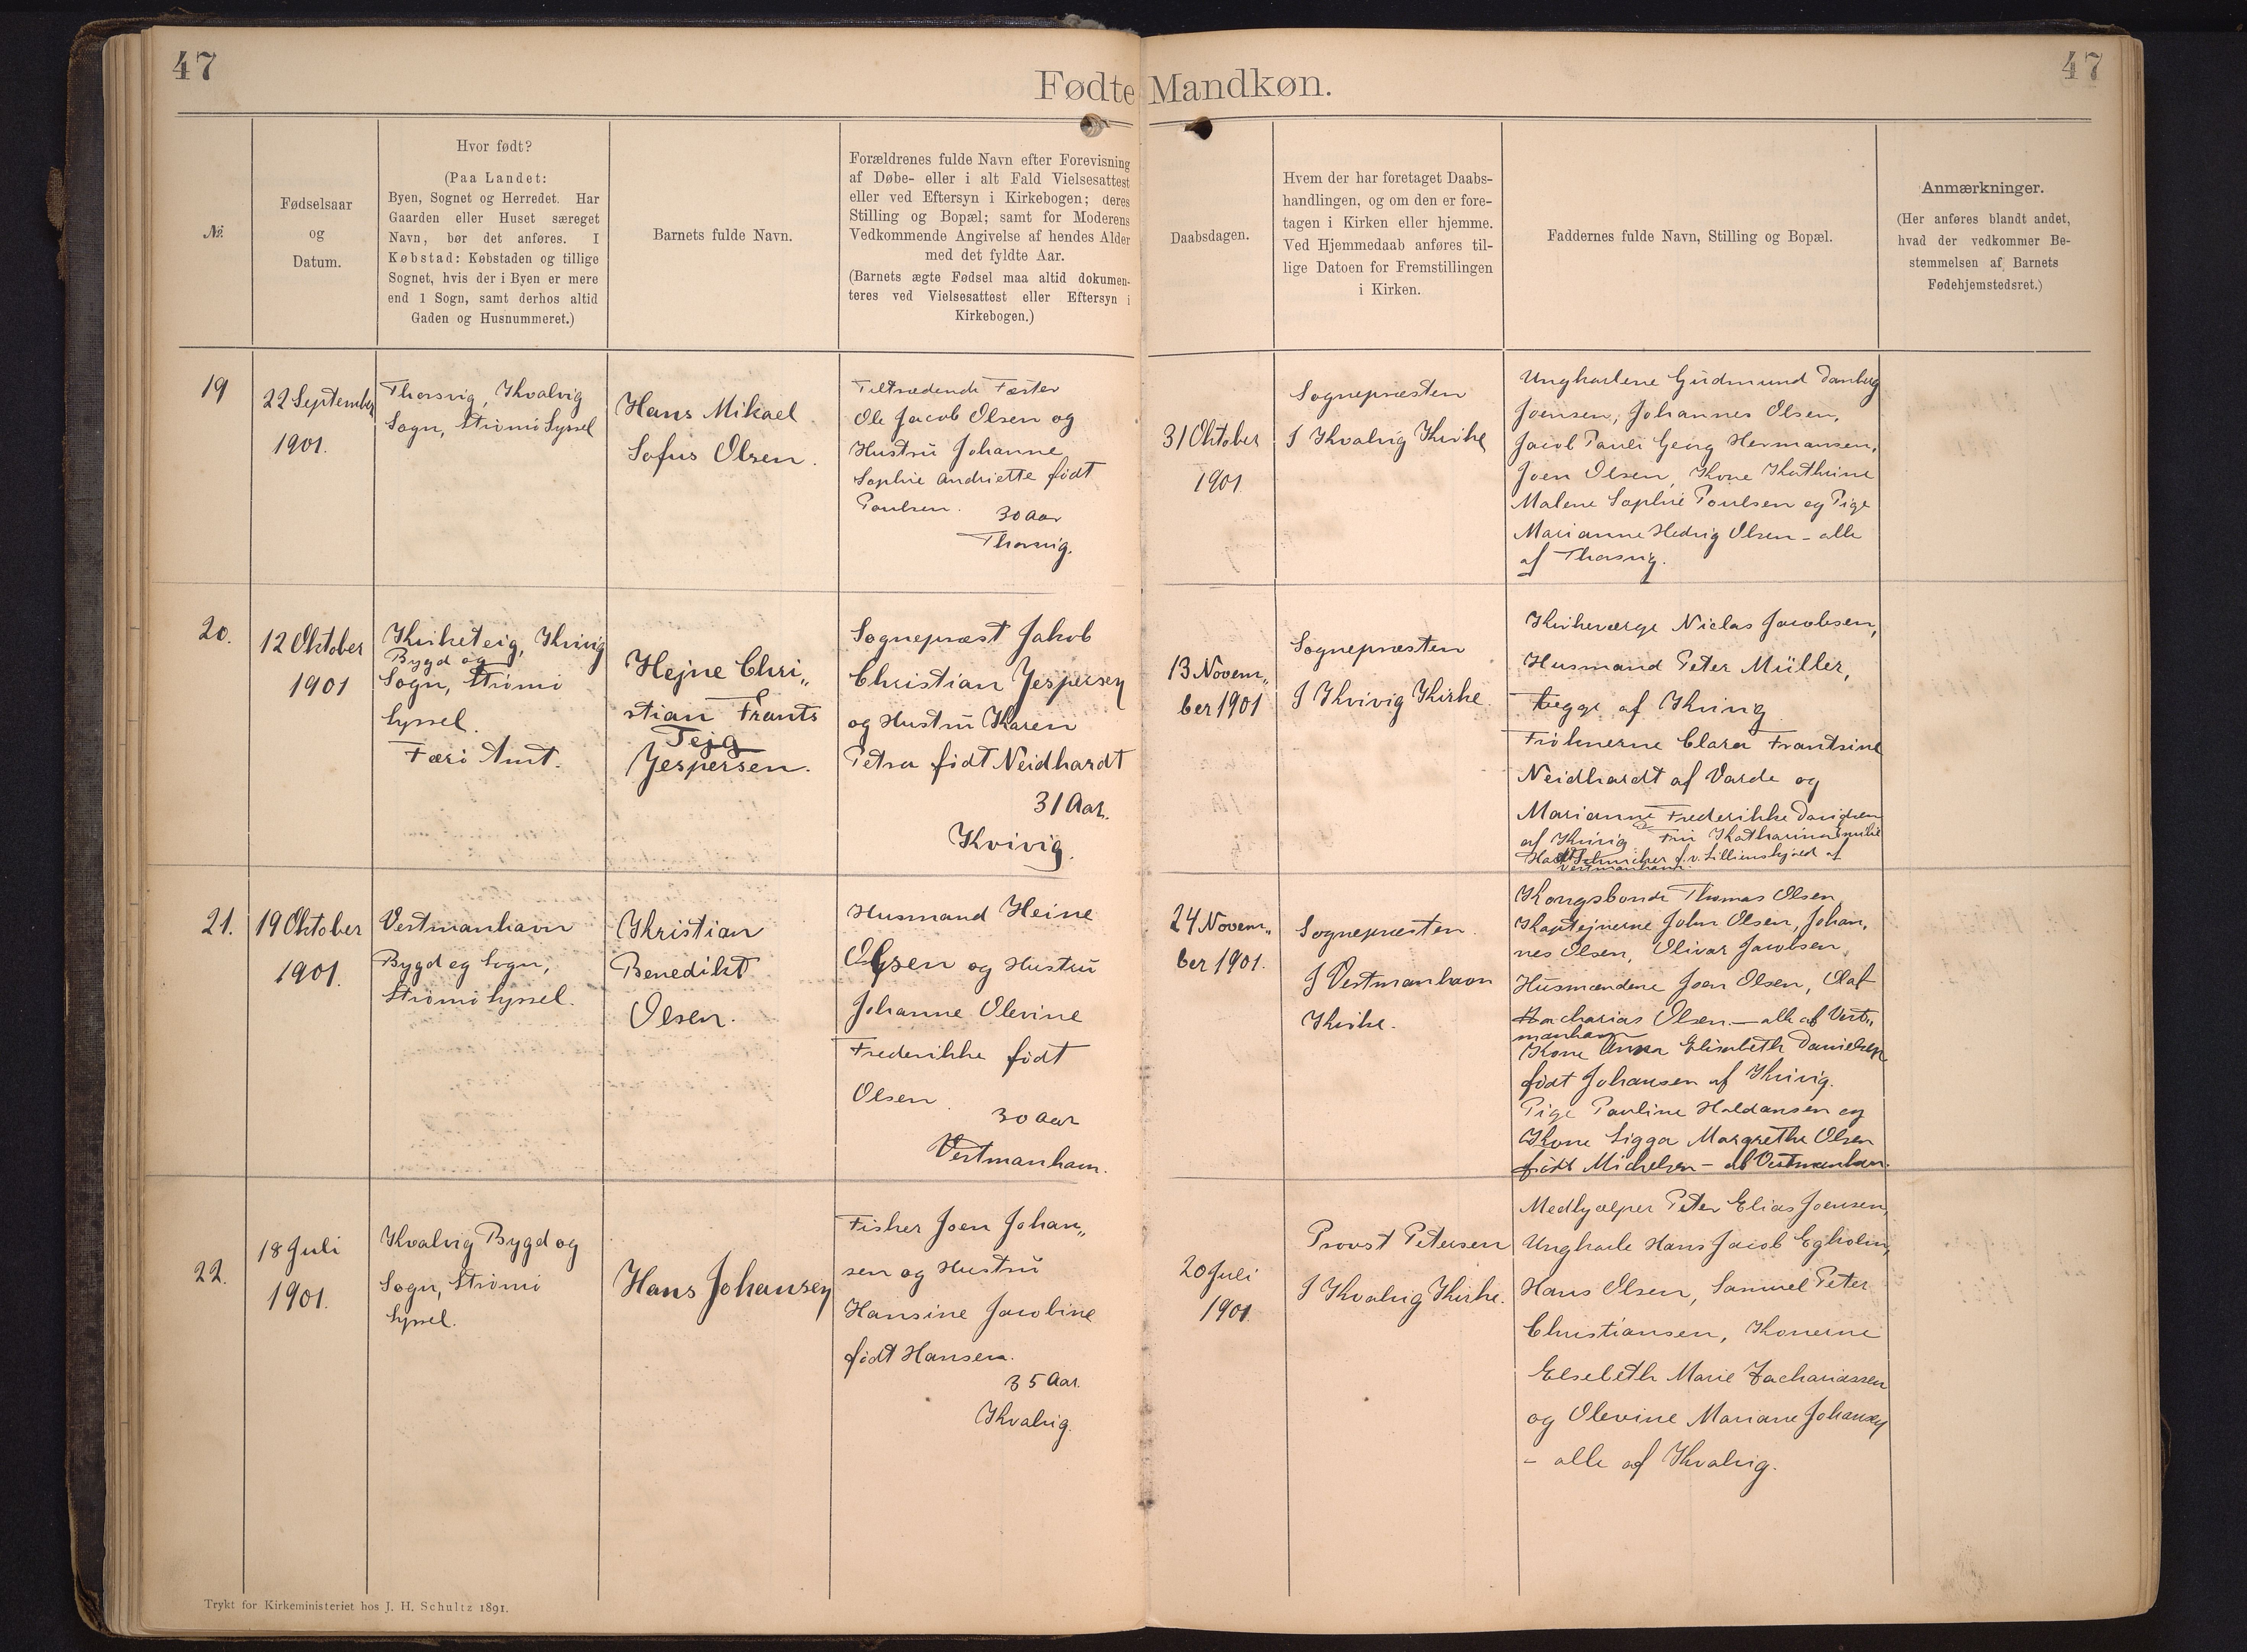 47
47
Fødte Mandkøn.
№.
Fødselsaar
og
Datum.
Hvor født?
(Paa Landet:
Byen, Sognet og Herredet. Har
Gaarden eller Huset særeget
Navn, bør det anføres. I
Købstad: Købstaden og tillige
Sognet, hvis der i Byen er mere
end 1 Sogn, samt derhos altid
Gaden og Husnummeret.)
Barnets fulde Navn.
Forældrenes fulde Navn efter Forevisning
af Døbe- eller i alt Fald Vielsesattest
eller ved Eftersyn i Kirkebogen; deres
Stilling og Bopæl; samt for Moderens
Vedkommende Angivelse af hendes Alder
med det fyldte Aar.
(Barnets ægte Fødsel maa altid dokumen-
teres ved Vielsesattest eller Eftersyn i
Kirkebogen.)
Daabsdagen.
Hvem der har foretaget Daabs-
handlingen, og om den er fore-
tagen i Kirken eller hjemme.
Ved Hjemmedaab anføres til-
lige Datoen for Fremstillingen
i Kirken.
Faddernes fulde Navn, Stilling og Bopæl.
Anmærkninger.
(Her anføres blandt andet,
hvad der vedkommer Be-
stemmelsen af Barnets
Fødehjemstedsret.)
19
22 September
1901.
Thorsvig, Kvalvig
Sogn, Strömö Syssel
Hans Mikael
Sofus Olsen.
Tiltrædende Fæster
Ole Jacob Olsen og
Hustru Johanne
Sophie Andriette født
Poulsen. 30 Aar
Thorsvig.
31 Oktober
1901.
Sognepræsten
I Kvalvig Kirke
Ungkarlene Gudmund Danberg
Joensen, Johannes Olsen,
Jacob Pauli Georg Hermansen,
Joen Olsen, Kone Kathrine
Malene Sophie Poulsen og Pige
Marianne Hedvig Olsen - alle
af Thorsvig.
20.
12 Oktober
1901
Kirketeig, Kvivig
Bygd og
Sogn, Strömö
Syssel.
Færö Amt.
Hejne Chri„
stian Frants
Tejg
Jespersen.
Sognepræst Jakob
Christian Jespersen
og Hustru Karen
Petra født Neidhardt
31 Aar.
Kvivig.
13 Novem„
ber 1901
Sognepræsten
I Kvivig Kirke.
Kirkeværge Niclas Jacobsen,
Husmand Peter Müller,
begge af Kvivig
Frøknerne Clara Frantsine
Neidhardt af Varde og
Marianne Frederikke Davidsen
af Kvivig Fru Katharina Emilie
f. v. Lillienskjold af
Vestmanhavn.
21.
19 Oktober
1901.
Vestmanhavn
Bygd og Sogn,
Strömö Syssel.
Kristian
Benedikt
Olsen.
Husmand Heine
Olsen og Hustru
Johanne Olevine
Frederikke født
Olsen
30 Aar
Vestmanhavn.
24 Novem„
ber 1901.
Sognepræsten.
I Vestmanhavn
Kirke.
Kongsbonde Thomas Olsen,
Kaptejnerne John Olsen, Johan„
nes Olsen, Olivar Jacobsen,
Husmændene Joen Olsen, Olaf
Zacharias Olsen - alle af Vest„
manhavn
Kone Anna Elisabeth Danielsen
født Johansen af Kvivig.
Pige Pauline Haldansen og
Kone Sigga Margrethe Olsen
født Michelsen - af Vestmanhavn.
22.
18 Juli
1901.
Kvalvig Bygd og
Sogn, Strömö
Syssel.
Hans Johansen
Fisker Joen Johan„
sen og Hustru
Hansine Jacobine
født Hansen.
35 Aar.
Kvalvig.
20 Juli
1901.
Provst Petersen
I Kvalvig Kirke.
Medhjælper Peter Elias Joensen,
Ungkarle Hans Jacob Egholm,
Hans Olsen, Samuel Peter
Christiansen, Konerne
Elsebeth Marie Zachariassen
og Olevine Mariane Johansen
- alle af Kvalvig.
Trykt for Kirkeministeriet hos J. H. Schultz 1891.